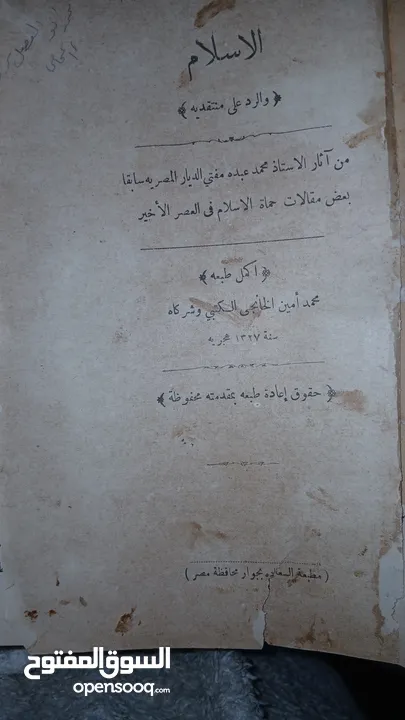 الاسلام
﴿ والرد على منتقديه ﴾
من آثار الاستاذ محمد عبده مفتي الديار المصريه سابقا
بعض مقالات حماة الاسلام فى العصر الأخير
﴿ اكمل طبعه ﴾
محمد أمين الخانجى الكتبي وشركاه
سنة ١٣٢٧ هجريه
﴿ حقوق إعادة طبعه بمقدمته محفوظة ﴾
( مطبعة السعاده بجوار محافظة مصر )
السوق المفتوح
opensooq.com